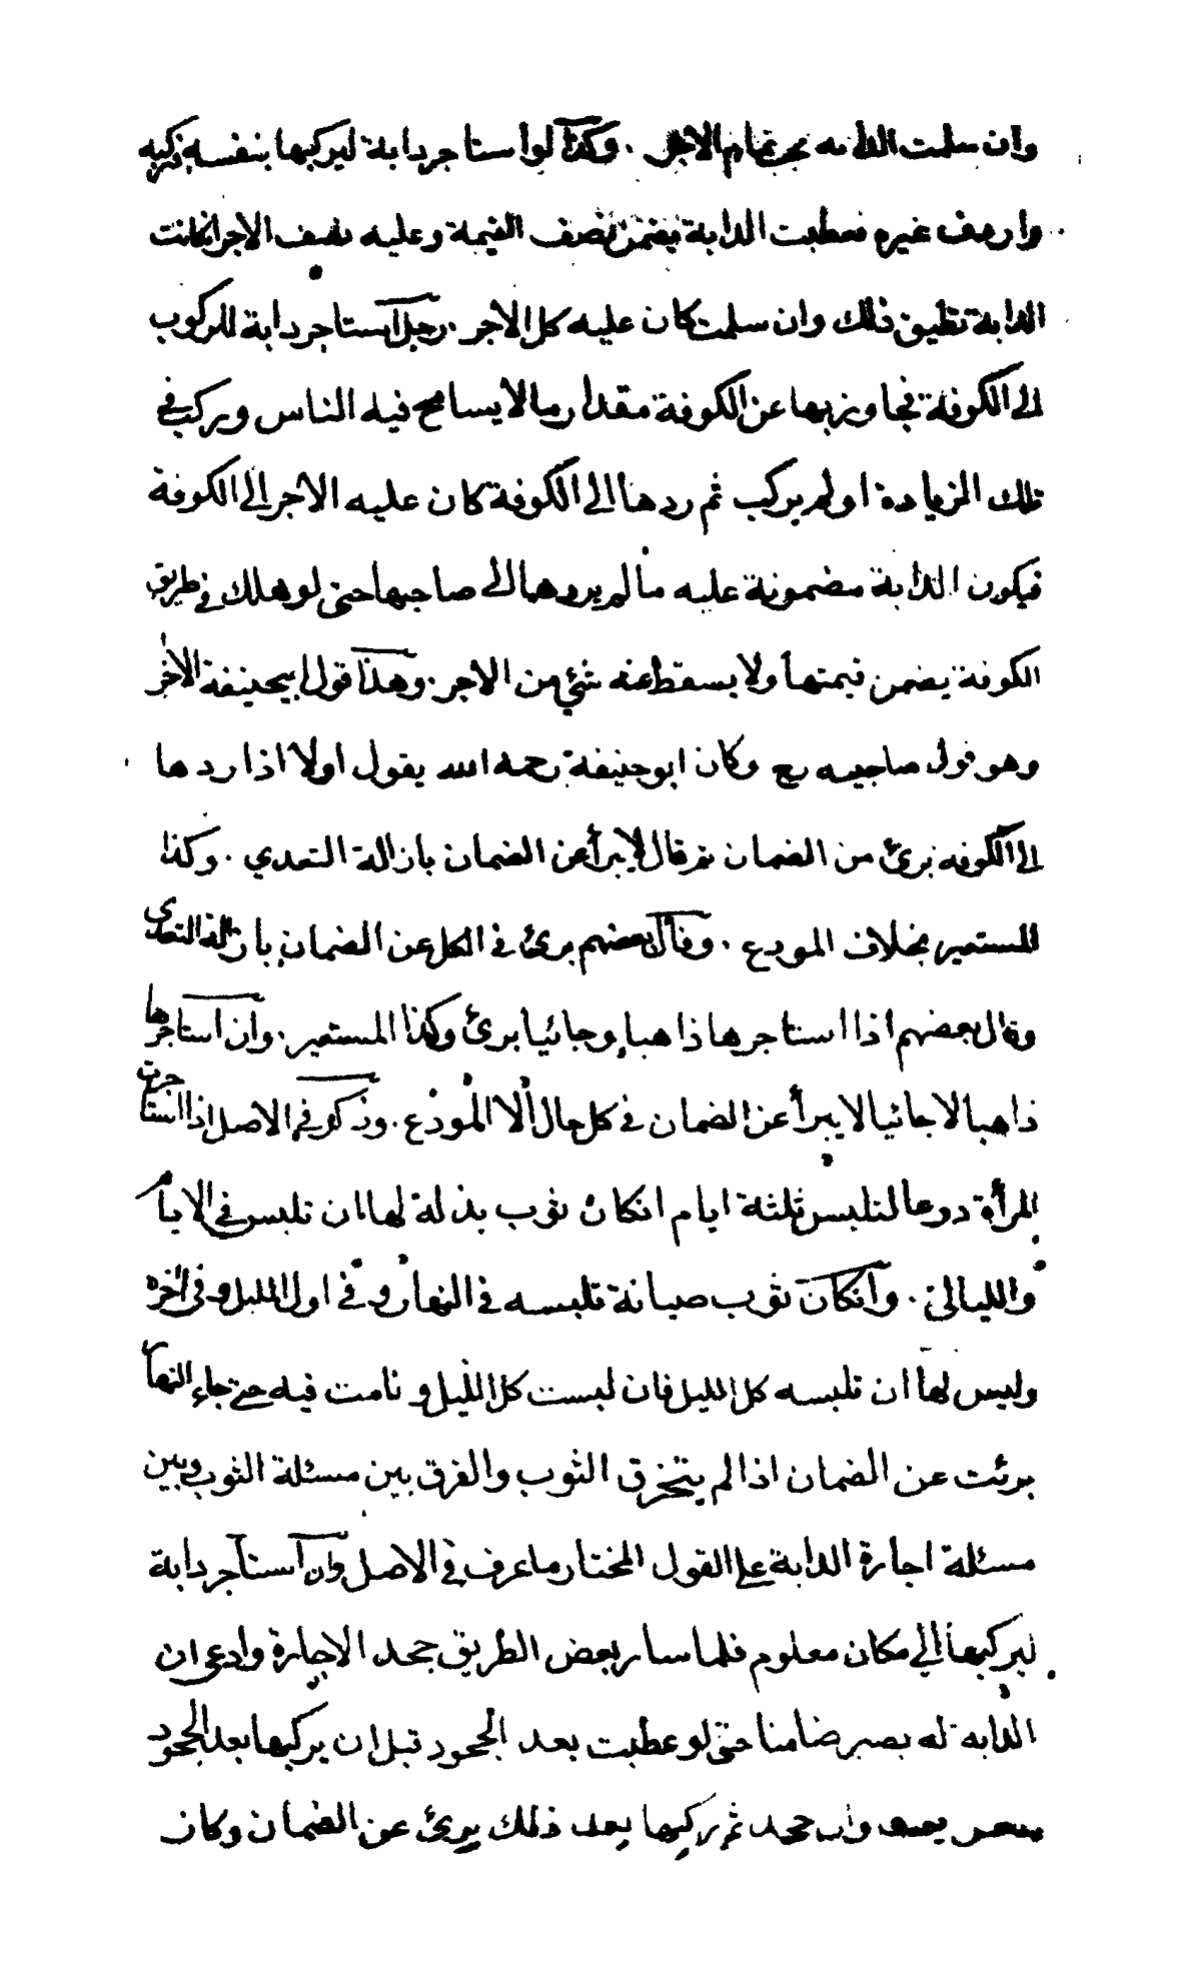 وان سلمت الدابه يجب تمام الاجر . وكذا لو استاجر دابة ليركبها بنفسه فركبه
واردف غيره فعطبت الدابة يضمن نصف القيمة وعليه نصف الاجر انكانت
الدابة تطيق ذلك وان سلمت كان عليه كل الاجر . رجل استاجر دابة للركوب
الى الكوفة فجاوز بها عن الكوفة مقدار ما لا يسامح فيه الناس وركب في
تلك الزيادة اولم يركب ثم ردها الى الكوفة كان عليه الاجر الى الكوفة
فيكون الدابة مضمونة عليه مالم يردها الى صاحبها حتى لو هلك في طريق
الكوفة يضمن قيمتها ولا يسقط عنه شئ من الاجر . وهذا قول ابيحنيفة الاخر
وهو قول صاحبيه رح وكان ابو حنيفة رحمه الله يقول اولا اذا ردها
الى الكوفه برئ من الضمان ثم قال لا يبرأ عن الضمان بازالة التعدي . وكذا
المستعير بخلاف المودع . وقال بعضهم برئ في الكل عن الضمان بازالة التعدى
وقال بعضهم اذا استاجرها ذاهبا وجائيا برئ وكذا المستعير . وان استاجرها
ذاهبا لا جائيا لا يبرأ عن الضمان في كل حال الا المودع . وذكر في الاصل اذا استاجرت
المرأة درعا لتلبس ثلثة ايام انكان ثوب بذلة لها ان تلبس في الايام
والليالي . وانكان ثوب صيانة تلبسه في النهار وفي اول الليل وفي اخره
وليس لها ان تلبسه كل الليل فان لبست كل الليل ونامت فيه حتى جاء النهار
برئت عن الضمان اذا لم يتخرق الثوب والفرق بين مسئلة الثوب وبين
مسئلة اجارة الدابة على القول المختار ما عرف في الاصل وان استاجر دابة
ليركبها الى مكان معلوم فلما سار بعض الطريق جحد الاجارة وادعى ان
الدابه له يصير ضامنا حتى لو عطبت بعد الجحود قبل ان يركبها بعد الجحود
يضمن وان جحد ثم ركبها بعد ذلك برئ عن الضمان وكان